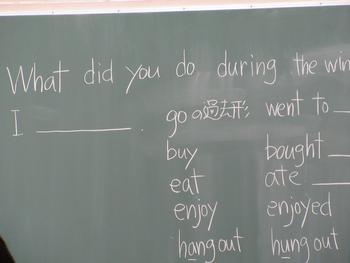 What did you do during the win
I ________. go の過去形 went to __
buy bought __
eat ate __
enjoy enjoyed
hangout hung out